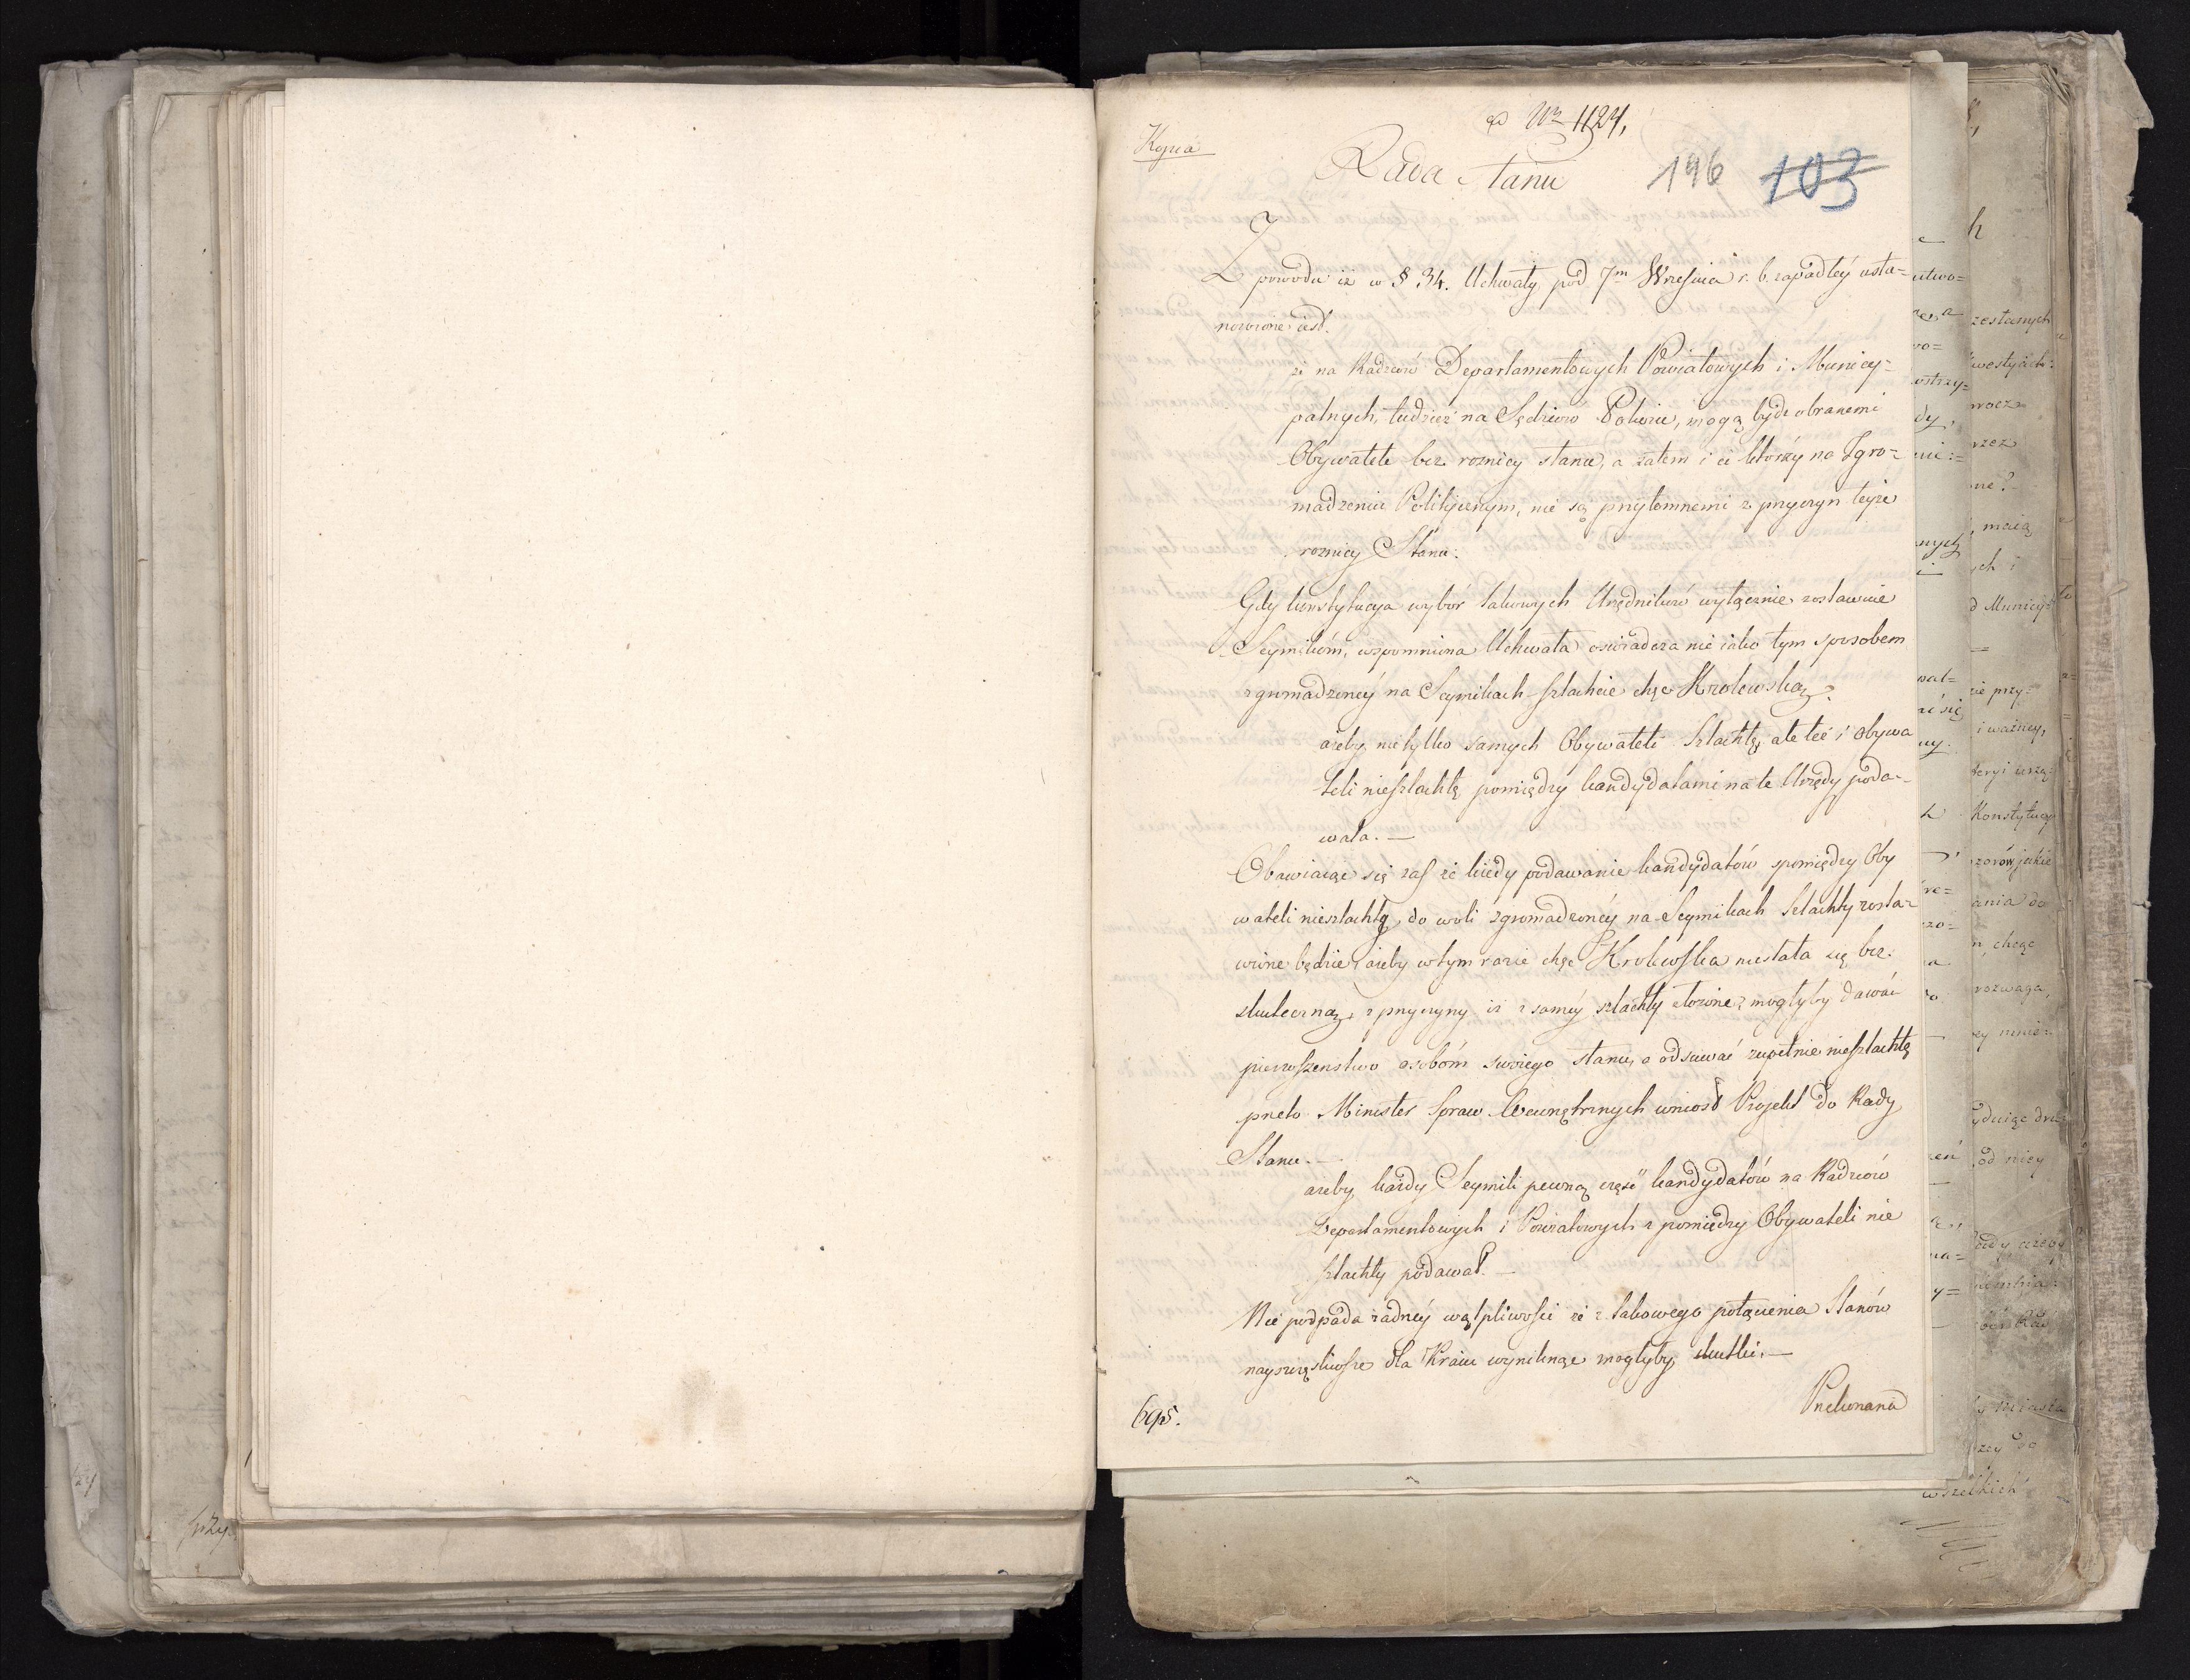 Kopia
ad Nr 1124,
Rada Stanu
146 103
Z powodu iż w § 34. Uchwały pod 7m Września r. b. zapadłéy usta=
nowione iest.
że na Radzców Departamentowych Powiatowych i Municy=
palnych, tudzież na Sędziów Pokoiu, mogą bydź obranemi
Obywatele bez roznicy stanu, a zatem i ci którzy na Zgro=
madzeniu Politycznym, nie są przytomnemi z przyczyn teyże
roznicy Stanu.
Gdy konstytucya wybór takowych Urzędników wyłącznie zostawuie
Seymikóm, wspomniona Uchwała oświadcza nie iako tym sposobem
zgromadzonéy na Seymikach szlachcie chęć Krolewską.
ażeby nietylko samych Obywateli Szlachtę, ale też i obywa
teli nieszlachtę pomiędzy kandydatami na te Urzędy poda=
wała. —
Obawiaiąc się zaś że kiedy podawanie kandydatów spomiędzy Oby
wateli nieszlachtę, do woli zgromadzonéy na Seymikach Szlachty zosta=
wione będzie, ażeby w tym razie chęć Krolewska niestała się bez=
skuteczną, z przyczyny iż z saméy szlachty złożone, mogłyby dawać
pierwszenstwo osobóm swoiego stanu, a odsuwać zupełnie nieszlachtę
przeto Minister Spraw Wewnętrznych wniosł Projekt do Rady
Stanu. —
ażeby każdy Seymik pewną część kandydatów na Radzców
Departamentowych i Powiatowych z pomiędzy Obywateli nie
szlachty podawał. —
Nie podpada żadnéy wątpliwości że z takowego połączenia Stanów
nayszczęśliwsze dla Kraiu wyniknąć mogłyby skutki. —
Przekonana
695.